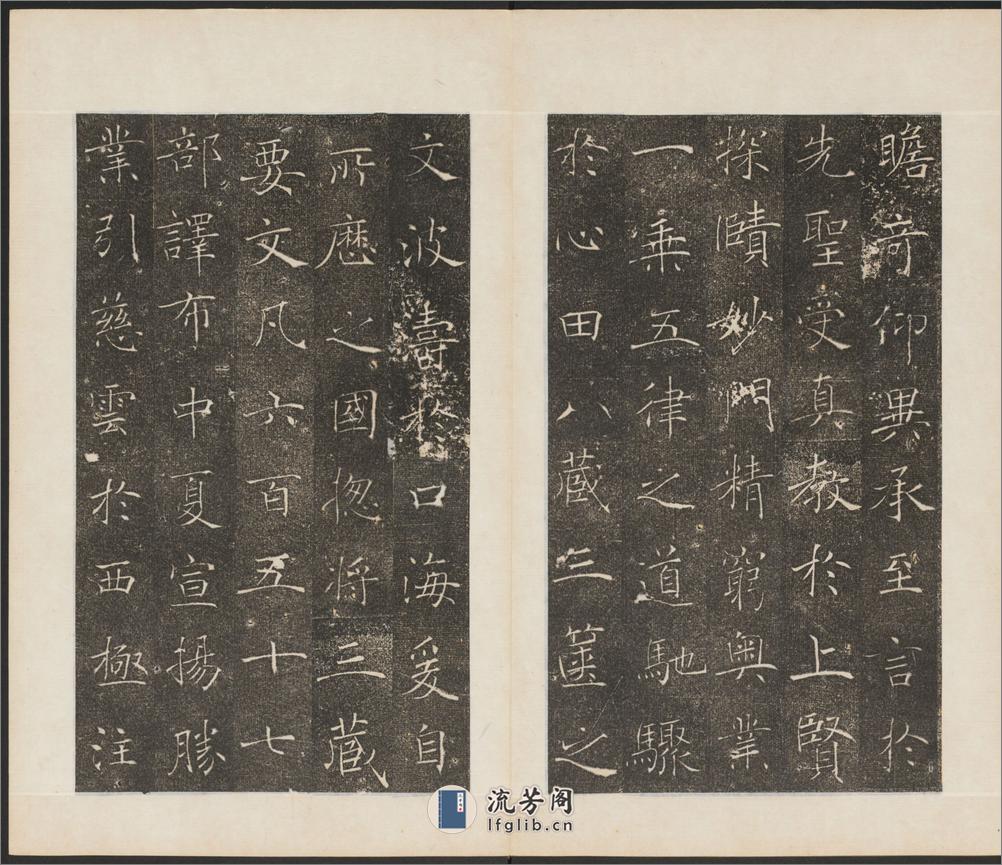 瞻奇仰異承至言於
先聖受真教於上賢
探賾妙門精窮奧業
一乘五律之道馳驟
於心田八藏三篋之
文波濤於口海爰自
所歷之國揔將三藏
要文凡六百五十七
部譯布中夏宣揚勝
業引慈雲於西極注
流芳阁
lfglib.cn